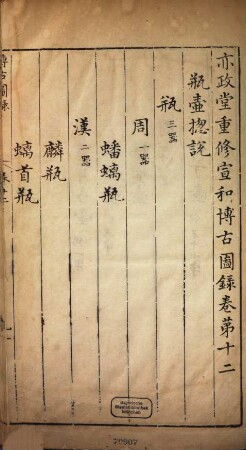 亦政堂重修宣和博古圖錄卷第十二
瓶壺揔説
瓶三器
周一器
蟠螭瓶
漢二器
麟瓶
螭首瓶
博古圖錄
Bayerische
Staatsbibliothek
München